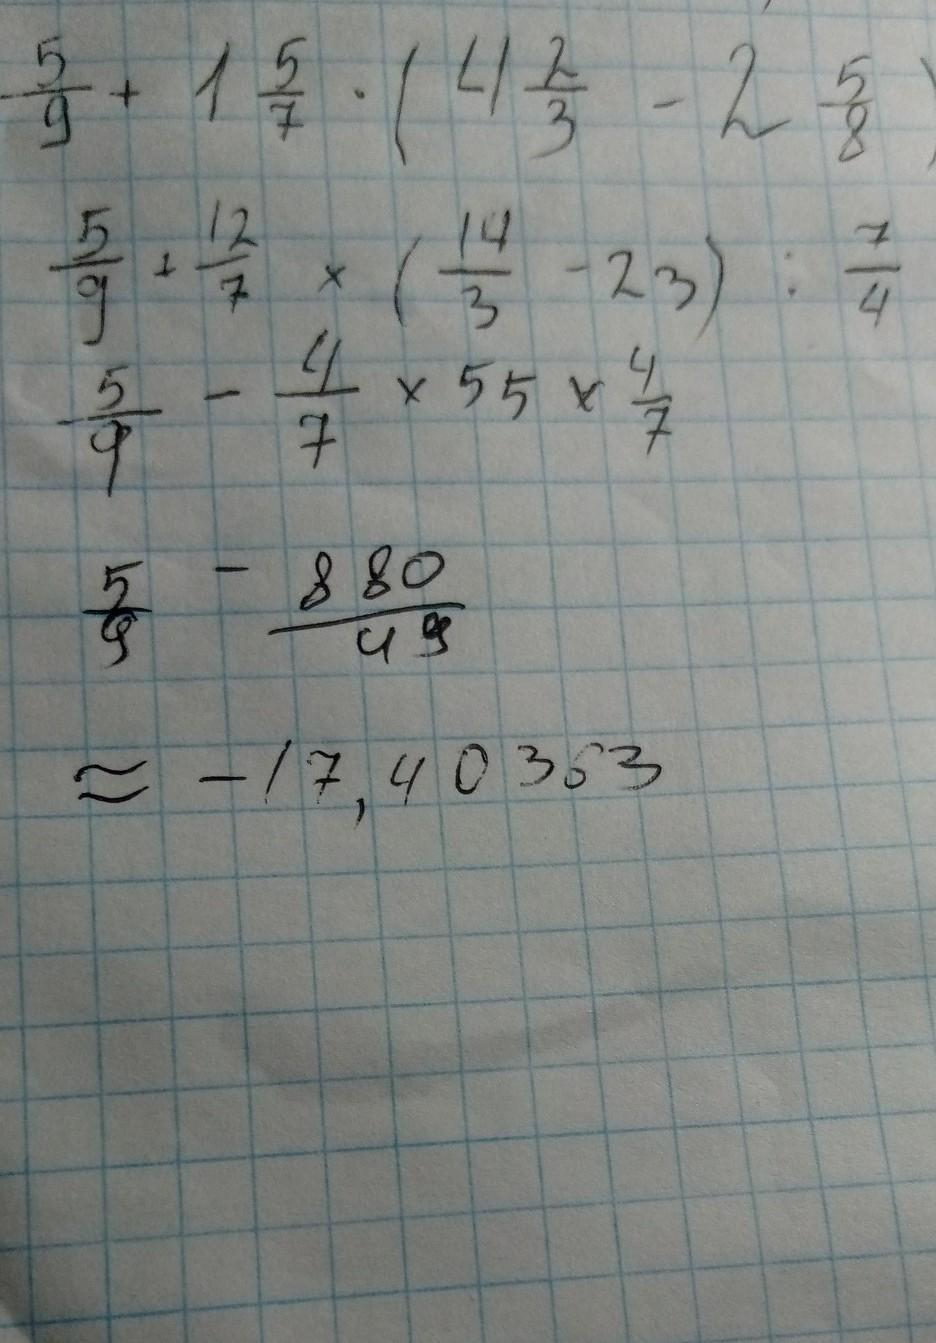 5/9 + 1 5/7 · (4 2/3 - 2 5/8)
5/9 + 12/7 × (14/3 - 23) : 7/4
5/9 - 4/7 × 55 × 4/7
5/9 - 880/49
≈ -17,40363